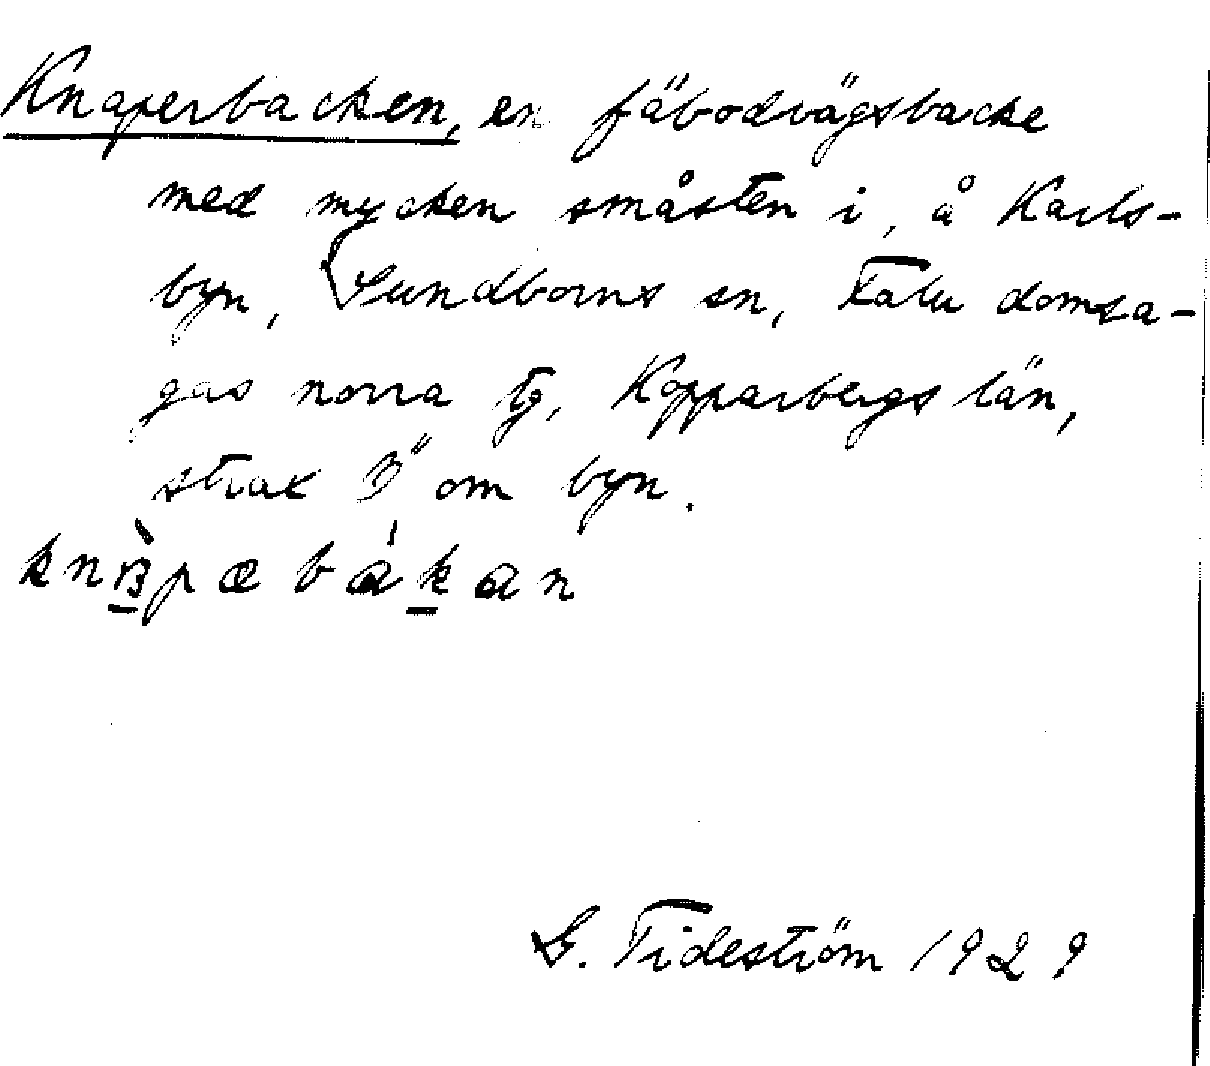 Knaperbacken, en fäbodvägsbacke
med mycken småsten i, å Karls-
byn, Sundborns sn, Falu domsa-
gas norra tg, Kopparbergs län,
strax om byn.
G. Tideström 1929